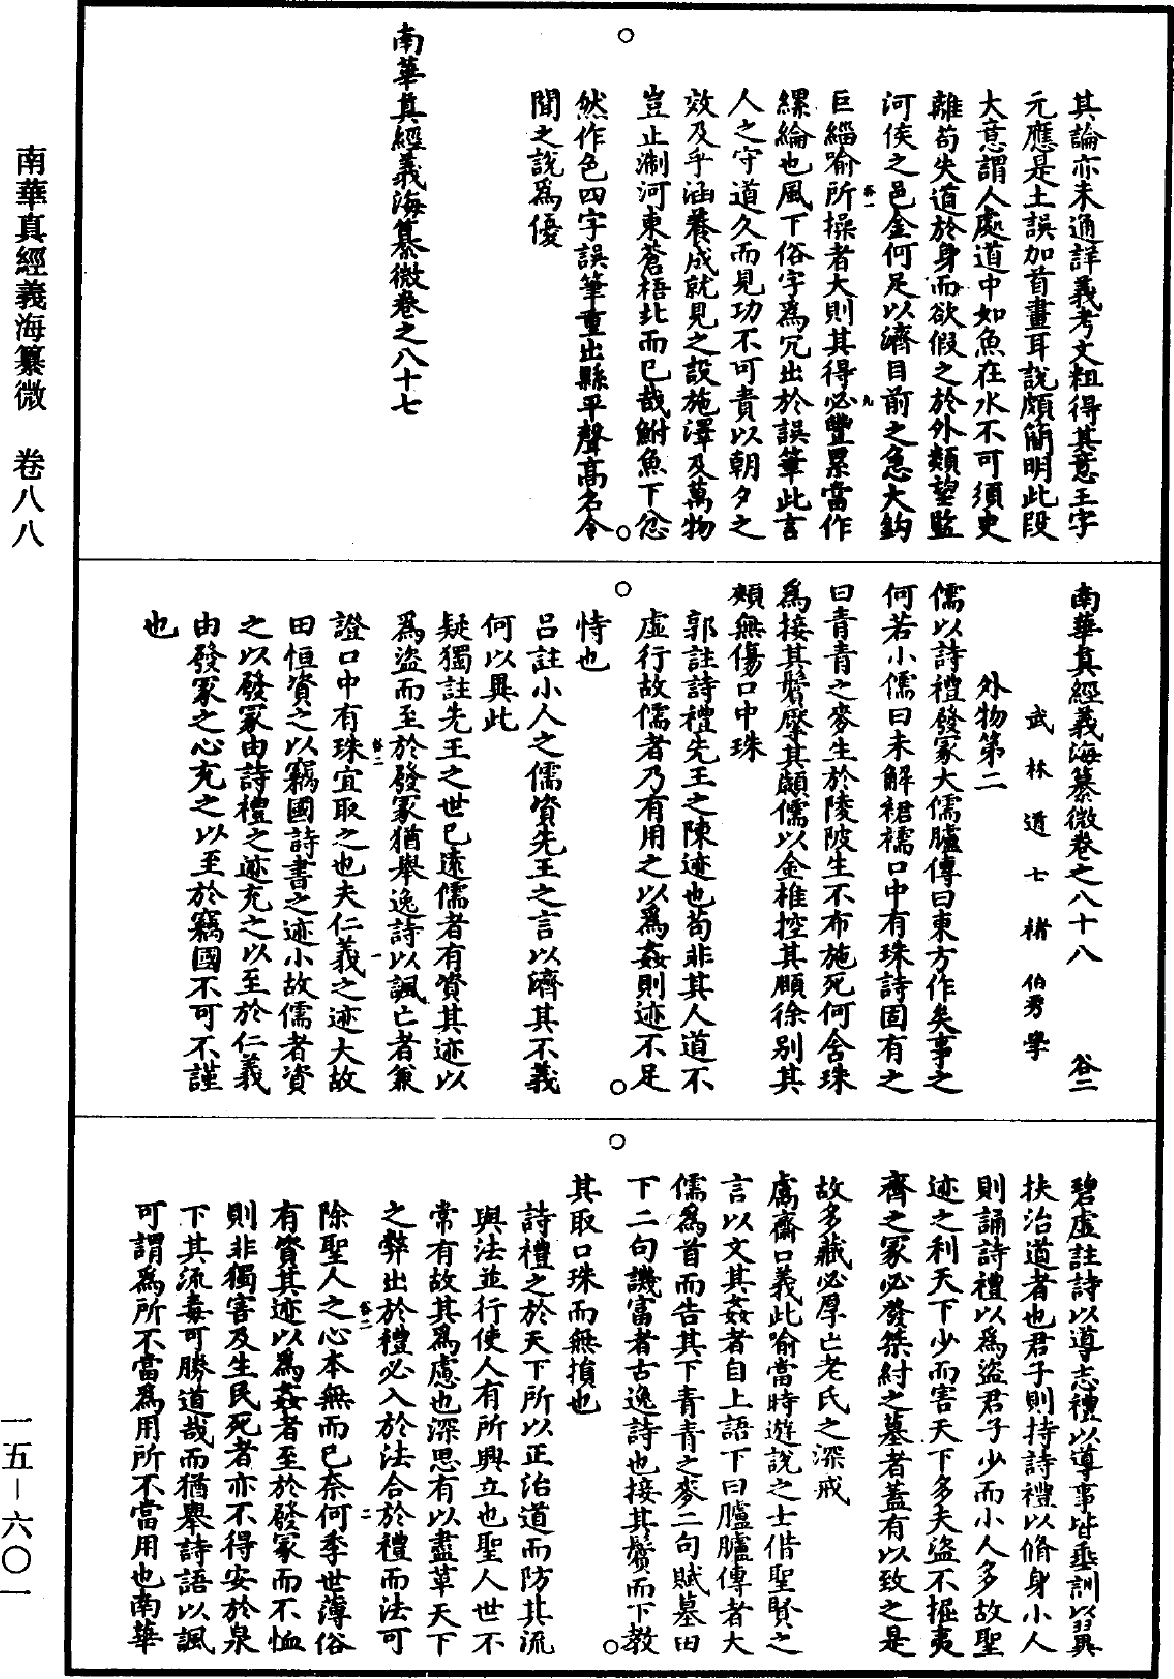 南華真經義海纂微　卷八八
其論亦未通詳義考文粗得其意王字
元應是土誤加首畫耳說頗簡明此段
大意謂人處道中如魚在水不可須臾
離苟失道於身而欲假之於外類望監
河侯之邑金何足以濟目前之急大鈎
巨緇喻所操者大則其得必豐累當作
縲綸也風下俗字為冗出於誤筆此言
人之守道久而見功不可責以朝夕之
效及乎涵養成就見之設施澤及萬物
豈止淛河東蒼梧北而已哉鮒魚下忿
然作色四字誤筆重出縣平聲高名令
聞之說為優
南華真經義海纂微卷之八十七
南華真經義海纂微卷之八十八　谷二
武林道士褚伯秀學
外物第二
儒以詩禮發冢大儒臚傳曰東方作矣事之
何若小儒曰未解裙襦口中有珠詩固有之
曰青青之麥生於陵陂生不布施死何含珠
為接其鬢壓其顪儒以金椎控其頤徐別其
頰無傷口中珠
郭註詩禮先王之陳迹也苟非其人道不
虛行故儒者乃有用之以為姦則迹不足
恃也
呂註小人之儒資先王之言以濟其不義
何以異此
疑獨註先王之世已遠儒者有資其迹以
為盜而至於發冢猶舉逸詩以諷亡者兼
證口中有珠宜取之也夫仁義之迹大故
田恒資之以竊國詩書之迹小故儒者資
之以發冢由詩禮之迹充之以至於仁義
由發冢之心充之以至於竊國不可不謹
也
碧虛註詩以導志禮以導事皆垂訓以翼
扶治道者也君子則持詩禮以脩身小人
則誦詩禮以為盜君子少而小人多故聖
迹之利天下少而害天下多夫盜不掘夷
齊之冢必發桀紂之墓者蓋有以致之是
故多藏必厚亡老氏之深戒
鬳齋口義此喻當時遊說之士借聖賢之
言以文其姦者自上語下曰臚臚傳者大
儒為首而告其下青青之麥二句賦墓田
下二句譏富者古逸詩也接其鬢而下教
其取口珠而無損也
詩禮之於天下所以正治道而防其流
與法並行使人有所興立也聖人世不
常有故其為慮也深思有以盡革天下
之弊出於禮必入於法合於禮而法可
除聖人之心本無而已奈何季世薄俗
有資其迹以為姦者至於發冢而不恤
則非獨害及生民死者亦不得安於泉
下其流毒可勝道哉而猶舉詩語以諷
可謂為所不當為用所不當用也南華
一五－六〇一